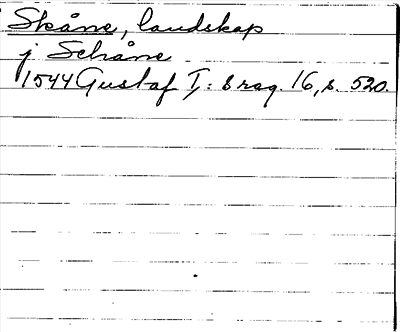 Skåne, landskap
j Schåne
1544 Gustaf I: s reg. 16, s. 520.